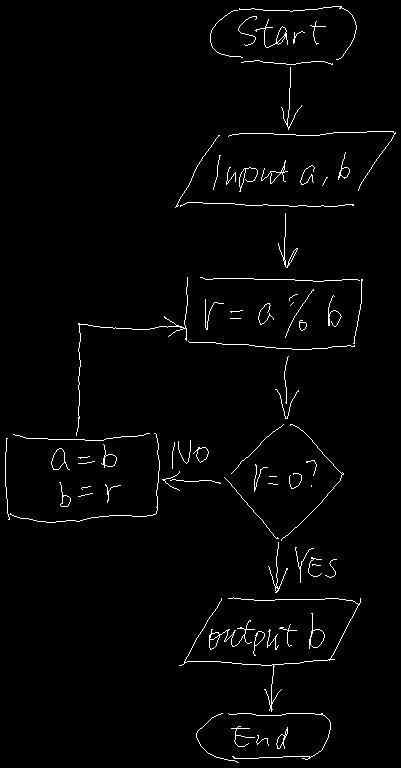 Start
Input a, b
r = a % b
r = 0?
NO
a = b
b = r
YES
output b
End